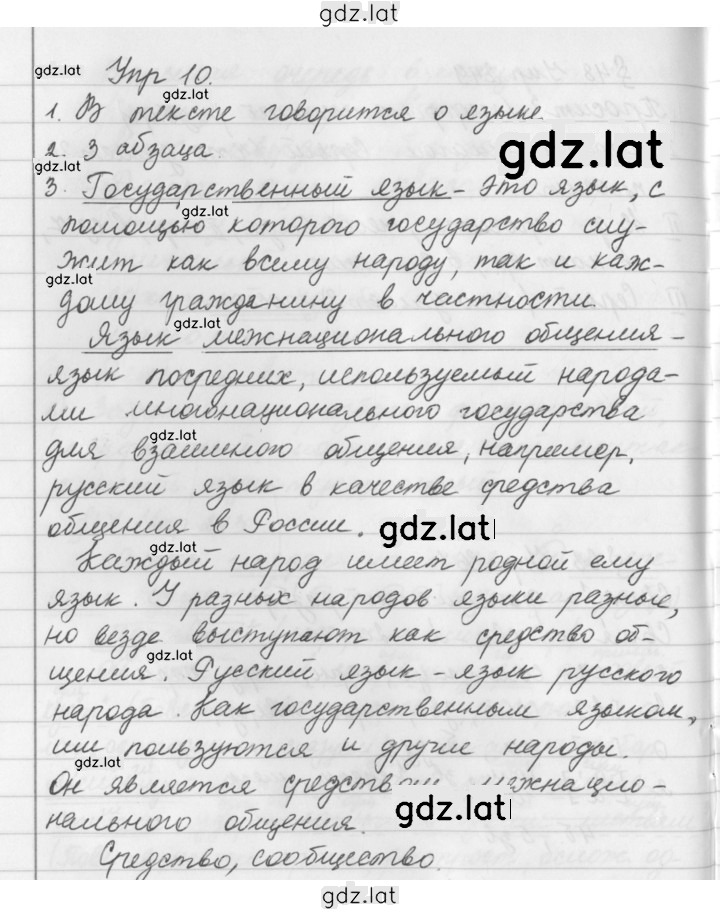 gdz.lat
gdz.lat
Упр 10.
1. В тексте говорится о языке.
gdz.lat
2. 3 абзаца.
gdz.lat
gdz.lat
3. Государственный язык - это язык, с
gdz.lat
помощью которого государство слу-
жит как всему народу, так и каж-
gdz.lat
дому гражданину в частности.
gdz.lat
Язык межнационального общения -
язык посредник, используемый народа-
ми многонационального государства
gdz.lat
для взаимного общения, например,
русский язык в качестве средства
общения в России.
gdz.lat
gdz.lat
Каждый народ имеет родной ему
язык. У разных народов языки разные,
но везде выступают как средство об-
gdz.lat
щения. Русский язык - язык русского
народа. Как государственным языком,
им пользуются и другие народы.
gdz.lat
Он является средством межнацио-
gdz.lat
нального общения.
Средство, сообщество.
gdz.lat